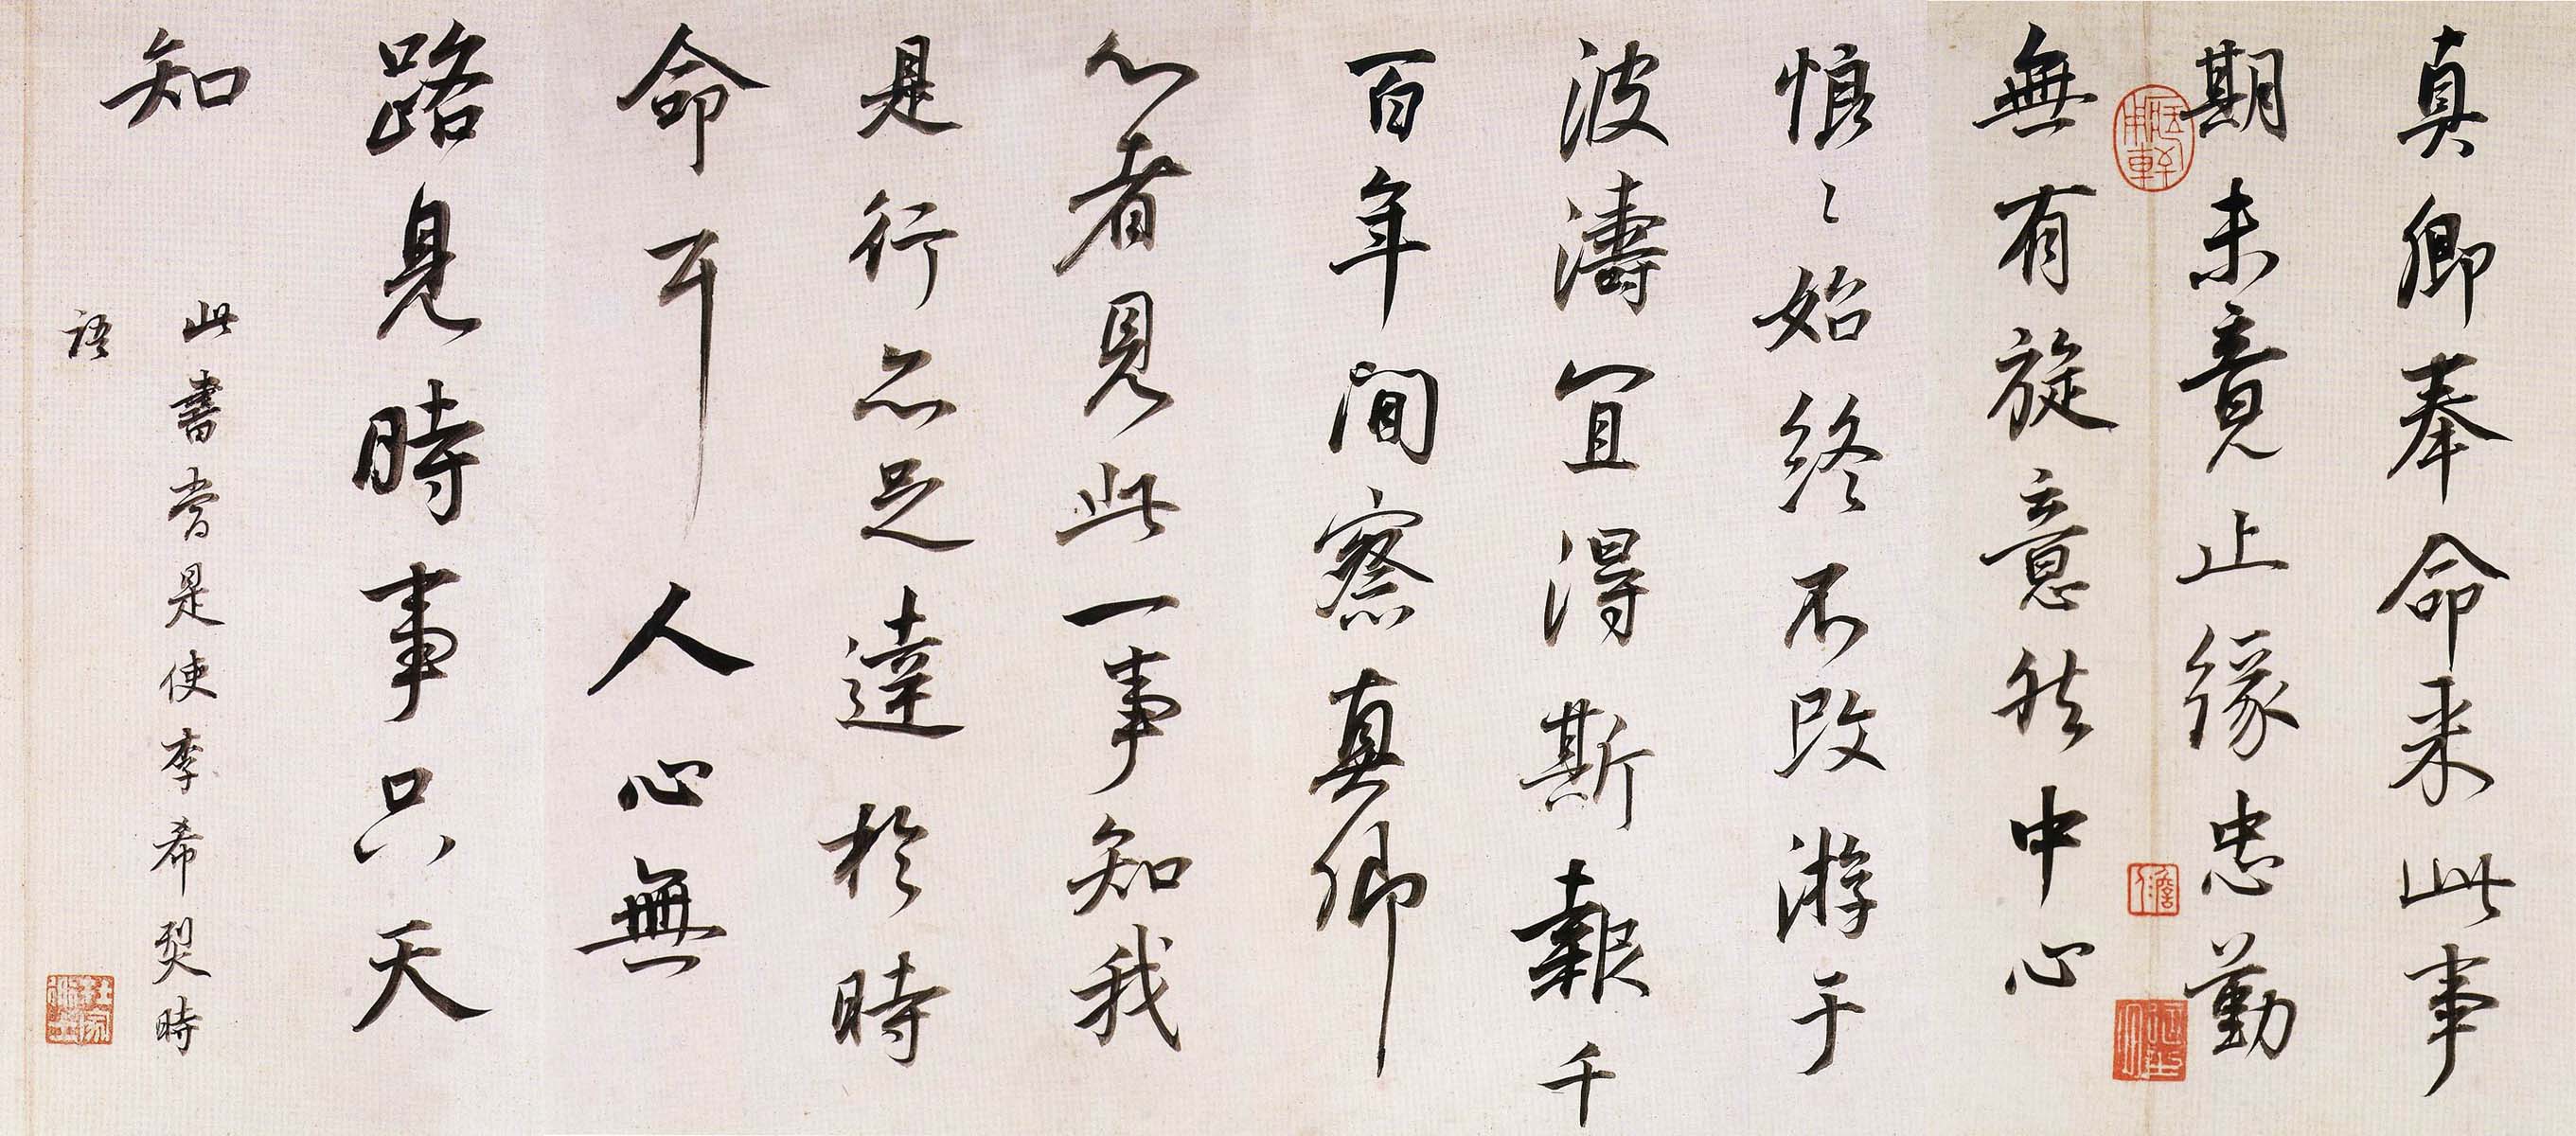 真卿奉命来此事
期未竟止緣忠勤
無有旋意然中心
悢々始終不改游于
波濤宜得斯報千
百年間察真卿
心者見此一事知我
是行亦足達於時
命耳 人心無
路見時事只天
知
此書當是使李希烈時
語